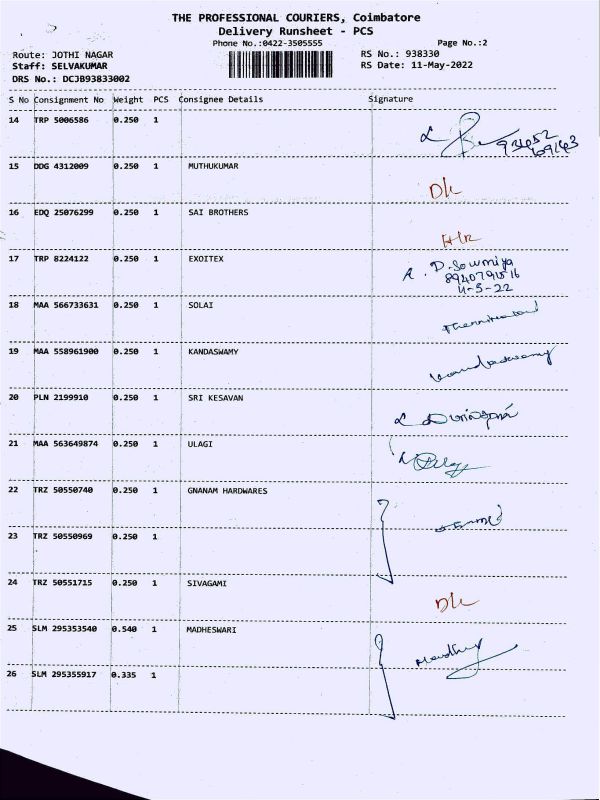 THE PROFESSIONAL COURIERS, Coimbatore
Delivery Runsheet - PCS
Phone No.:0422-3505555
Page No.:2
Route: JOTHI NAGAR
RS No.: 938330
Staff: SELVAKUMAR
RS Date: 11-May-2022
DRS No.: DCJB93833002
S No Consignment No Weight PCS Consignee Details Signature
14 TRP 5006586 0.250 1
15 DDG 4312009 0.250 1 MUTHUKUMAR
16 EDQ 25076299 0.250 1 SAI BROTHERS
17 TRP 8224122 0.250 1 EXOITEX
D. Sowmiya
18 MAA 566733631 0.250 1 SOLAI
19 MAA 558961900 0.250 1 KANDASWAMY
20 PLN 2199910 0.250 1 SRI KESAVAN
21 MAA 563649874 0.250 1 ULAGI
22 TRZ 50550740 0.250 1 GNANAM HARDWARES
23 TRZ 50550969 0.250 1
24 TRZ 50551715 0.250 1 SIVAGAMI
25 SLM 295353540 0.540 1 MADHESWARI
26 SLM 295355917 0.335 1